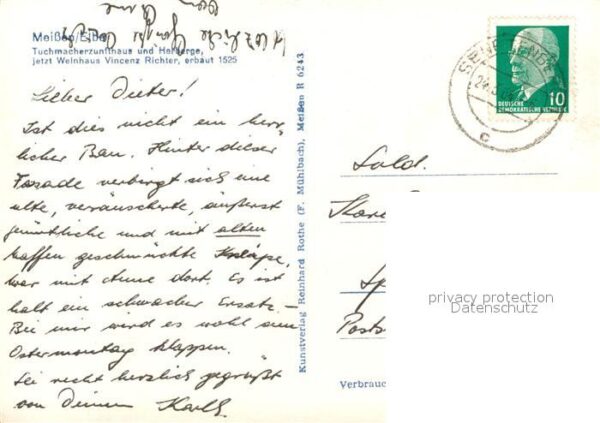 Meißen/Elbe
Tuchmacherzunfthaus und Herberge,
jetzt Weinhaus Vincenz Richter, erbaut 1525
Herzliche Grüße
Lieber Dieter!
Ist dies nicht ein herr-
licher Bau. Hinter dieser
Fassade verbirgt sich eine
alte, veräucherte, äußerst
gemütliche und mit alten
Waffen geschmückte Kneipe,
war mit dort. Es ist
halt ein schwacher Ersatz. –
Bei mir wird es wohl zum
Ostermontag klappen.
Sei recht herzlich gegrüßt
von Deinem Karli.
Kunstverlag Reinhard Rothe (F. Mühlbach), Meißen R 6243
DEUTSCHE
DEMOKRATISCHE REPUBLIK
10
Sold.
Posts
Verbrauc
privacy protection
Datenschutz